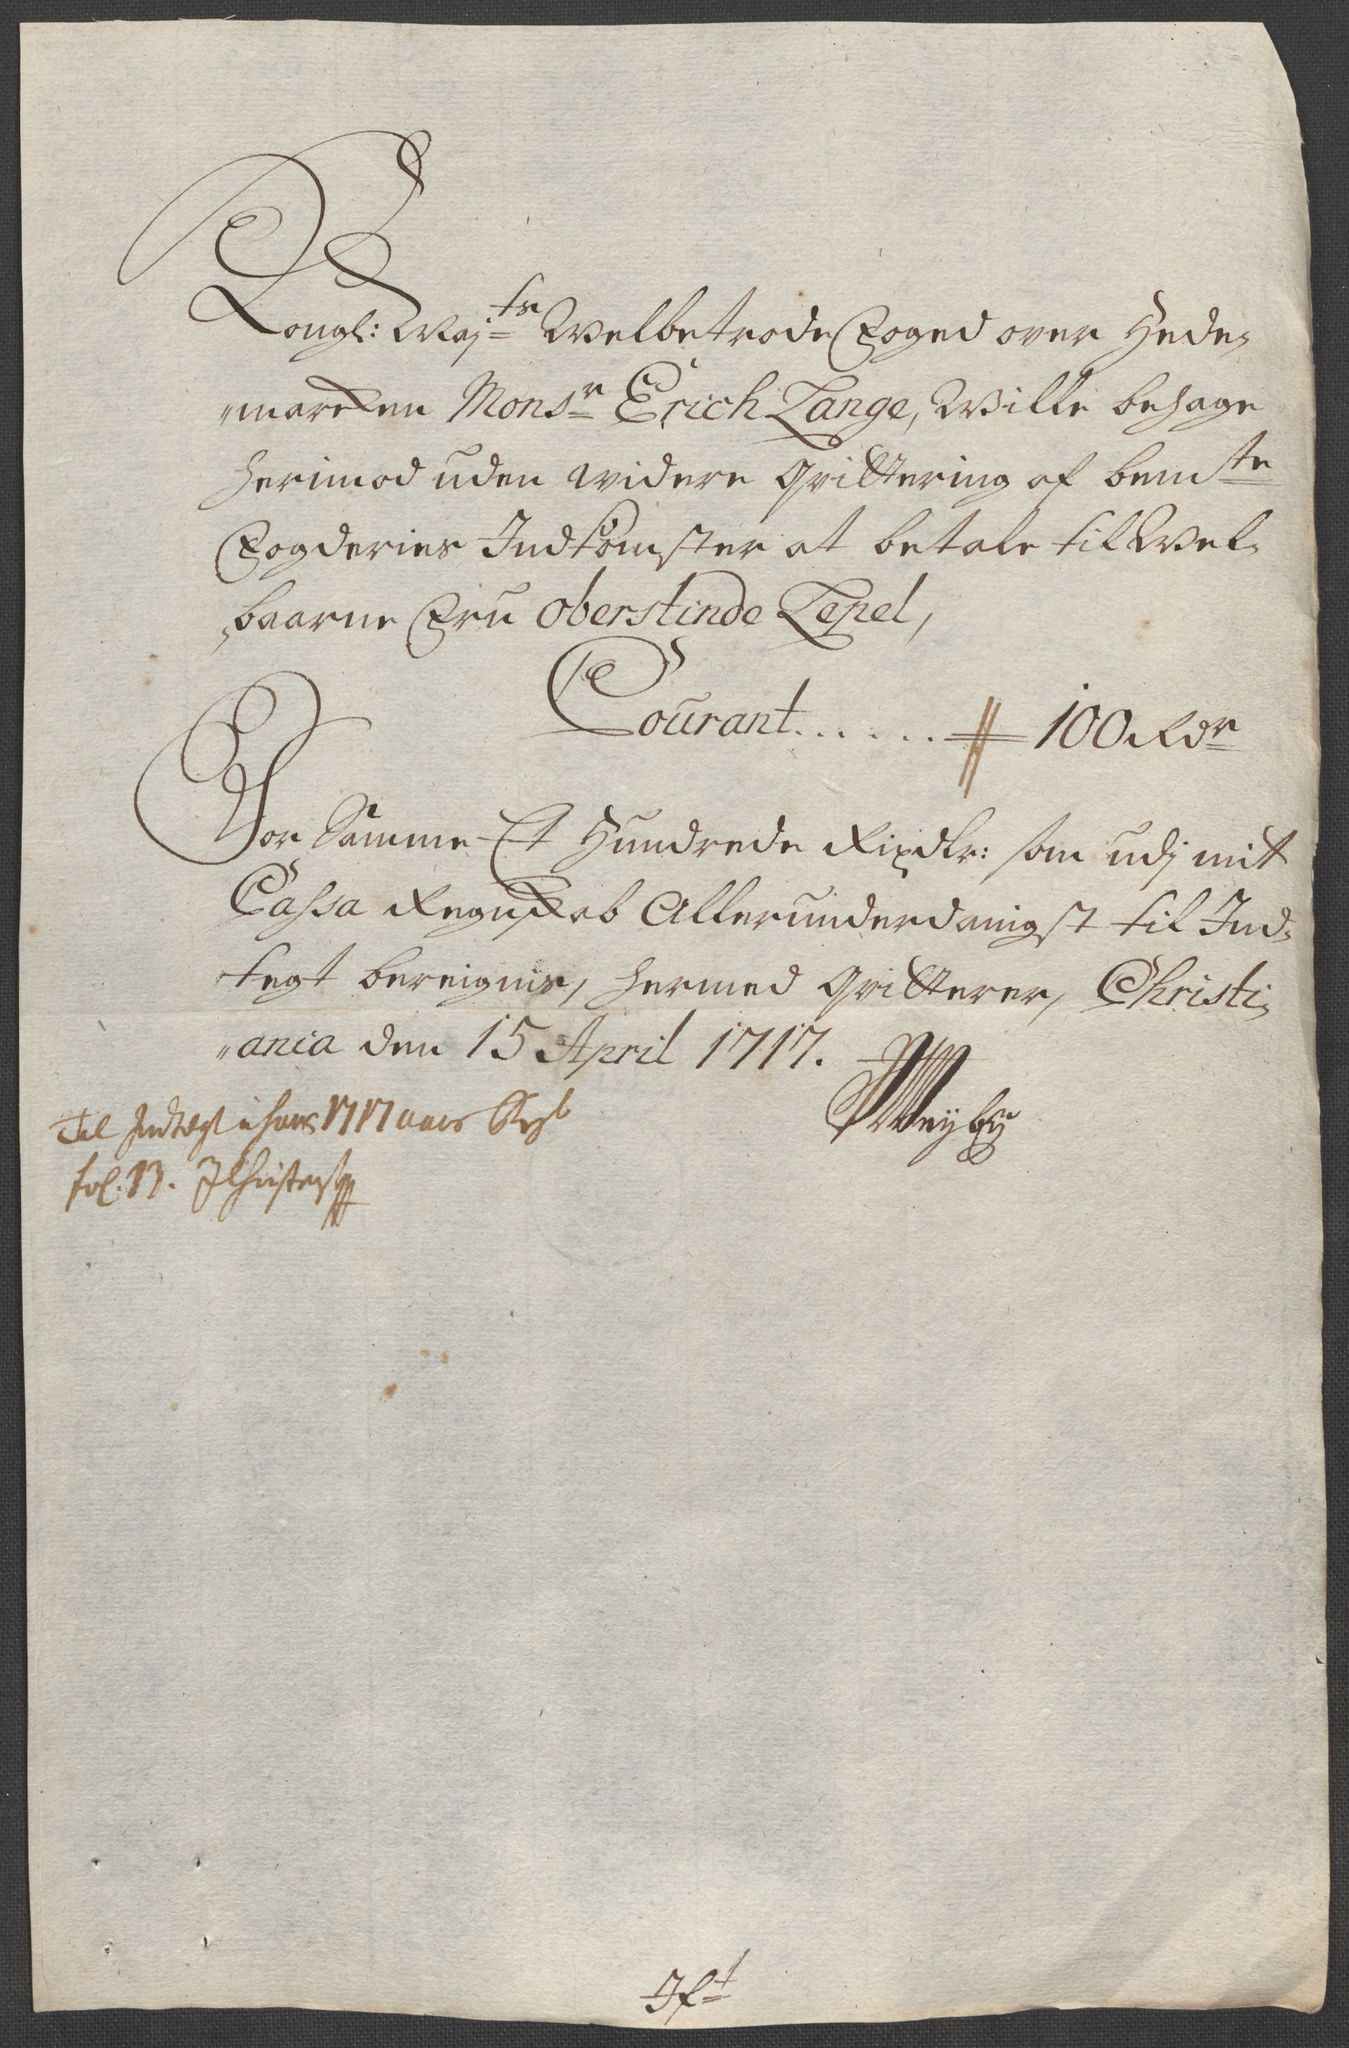 Kongl: Maj:ts Welbetrode Foged over Hede,
marcken Monsr Erich Lange, Wille behage
herimod uden widere Qvittering af bemte
Fogderies Indkomster at betale til Wel,
baarne Fru Oberstinde Lepel,
Courant...... 100 Rdr
For Samme Et Hundrede Rixdlr: som udj mit
Cassa Regnskab Allerunderdanigst til Ind,
tegt bereignes, hermed Qvitterer, Christi,
ania den 15 April 1717.
Meyby
Til Indtegt i hans 1717 aars Regb
fol. 13.